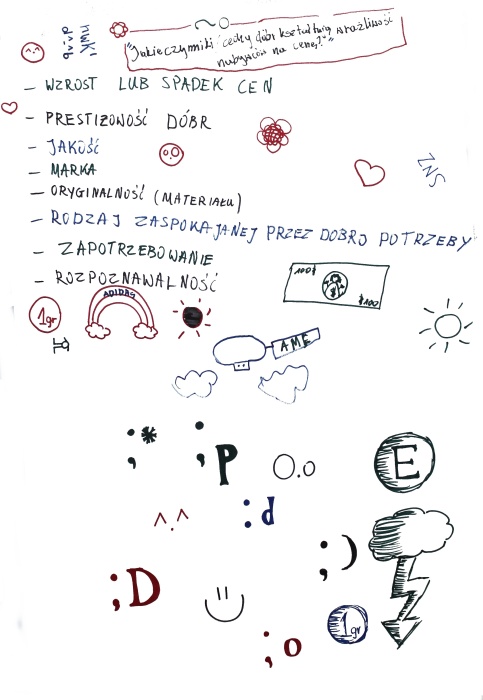 "Jakie czynniki/cechy dóbr kształtują wrażliwość
nabywców na cenę?"
- WZROST LUB SPADEK CEN
- PRESTIŻOWOŚĆ DÓBR
- JAKOŚĆ
- MARKA
- ORYGINALNOŚĆ (MATERIAŁU)
- RODZAJ ZASPOKAJANEJ PRZEZ DOBRO POTRZEBY
- ZAPOTRZEBOWANIE
- ROZPOZNAWALNOŚĆ
ZNS
100$
$100
1gr
ADIDAS
AME
;*
;P
O.o
E
^.^
:d
;)
;D
1gr
;o